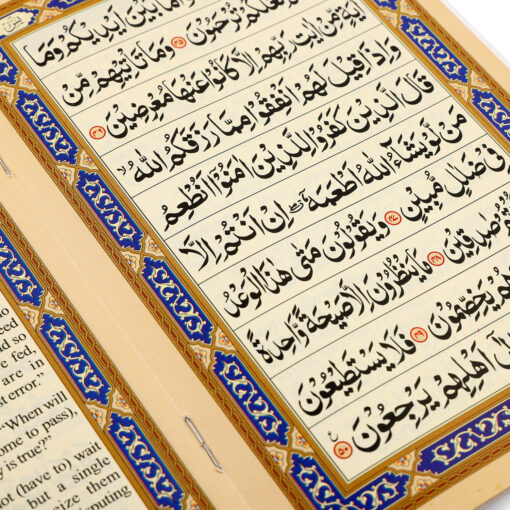 يٰسٓ
مَا بَيْنَ اَيْدِيْكُمْ وَمَا
لَعَلَّكُمْ تُرْحَمُوْنَ ۴۵ وَمَا تَاْتِيْهِمْ مِّنْ
اٰيَةٍ مِّنْ اٰيٰتِ رَبِّهِمْ اِلَّا كَانُوْا عَنْهَا مُعْرِضِيْنَ ۴۶
وَاِذَا قِيْلَ لَهُمْ اَنْفِقُوْا مِمَّا رَزَقَكُمُ اللّٰهُ ۙ
قَالَ الَّذِيْنَ كَفَرُوْا لِلَّذِيْنَ اٰمَنُوْٓا اَنُطْعِمُ
مَنْ لَّوْ يَشَآءُ اللّٰهُ اَطْعَمَهٗٓ ۖ اِنْ اَنْتُمْ اِلَّا
فِيْ ضَلٰلٍ مُّبِيْنٍ ۴۷ وَيَقُوْلُوْنَ مَتٰى هٰذَا الْوَعْدُ
صٰدِقِيْنَ ۴۸ مَا يَنْظُرُوْنَ اِلَّا صَيْحَةً وَّاحِدَةً
هُمْ يَخِصِّمُوْنَ ۴۹ فَلَا يَسْتَطِيْعُوْنَ
اَهْلِهِمْ يَرْجِعُوْنَ ۵۰
so
fed,
are in
error.'
"When will
come to pass),
is true?"
(have to) wait
but a single
seize them